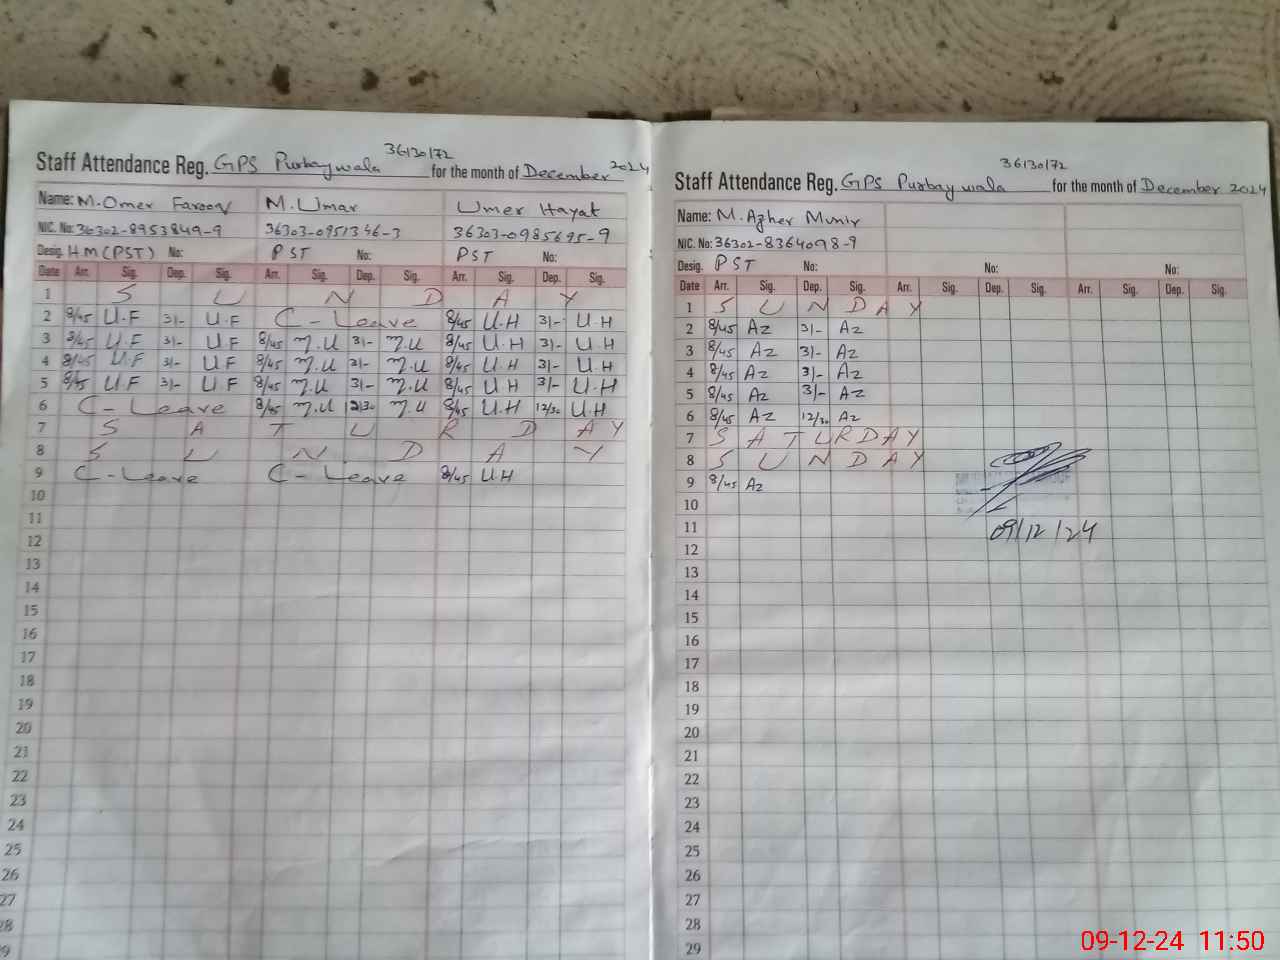 36130172
Staff Attendance Reg. GPS Purbaywala for the month of December 2024
Name: M. Omer Farooq M. Umar Umer Hayat
NIC. No: 36302-8953849-9 36303-0951346-3 36303-0985695-9
Desig. H.M (PST) No: PST No: PST No:
Date Arr. Sig. Dep. Sig. Arr. Sig. Dep. Sig. Arr. Sig. Dep. Sig.
1 S U N D A Y
2 8/45 U.F 3/- U.F C-Leave 8/45 U.H 3/- U.H
3 8/45 U.F 3/- U.F 8/45 M.U 3/- M.U 8/45 U.H 3/- U.H
4 8/45 U.F 3/- U.F 8/45 M.U 3/- M.U 8/45 U.H 3/- U.H
5 8/45 U.F 3/- U.F 8/45 M.U 3/- M.U 8/45 U.H 3/- U.H
6 C-Leave 8/45 M.U 12/30 M.U 8/45 U.H 12/30 U.H
7 S A T U R D A Y
8 S U N D A Y
9 C-Leave C-Leave 8/45 U.H
10
11
12
13
14
15
16
17
18
19
20
21
22
23
24
25
26
27
28
29
36130172
Staff Attendance Reg. GPS Purbaywala for the month of December 2024
Name: M. Azher Munir
NIC. No: 36302-8364098-9
Desig. PST No: No: No:
Date Arr. Sig. Dep. Sig. Arr. Sig. Dep. Sig. Arr. Sig. Dep. Sig.
1 S U N D A Y
2 8/45 Az 3/- Az
3 8/45 Az 3/- Az
4 8/45 Az 3/- Az
5 8/45 Az 3/- Az
6 8/45 Az 12/30 Az
7 S A T U R D A Y
8 S U N D A Y
9 8/45 Az
10
11 09/12/24
12
13
14
15
16
17
18
19
20
21
22
23
24
25
26
27
28
29
09-12-24 11:50